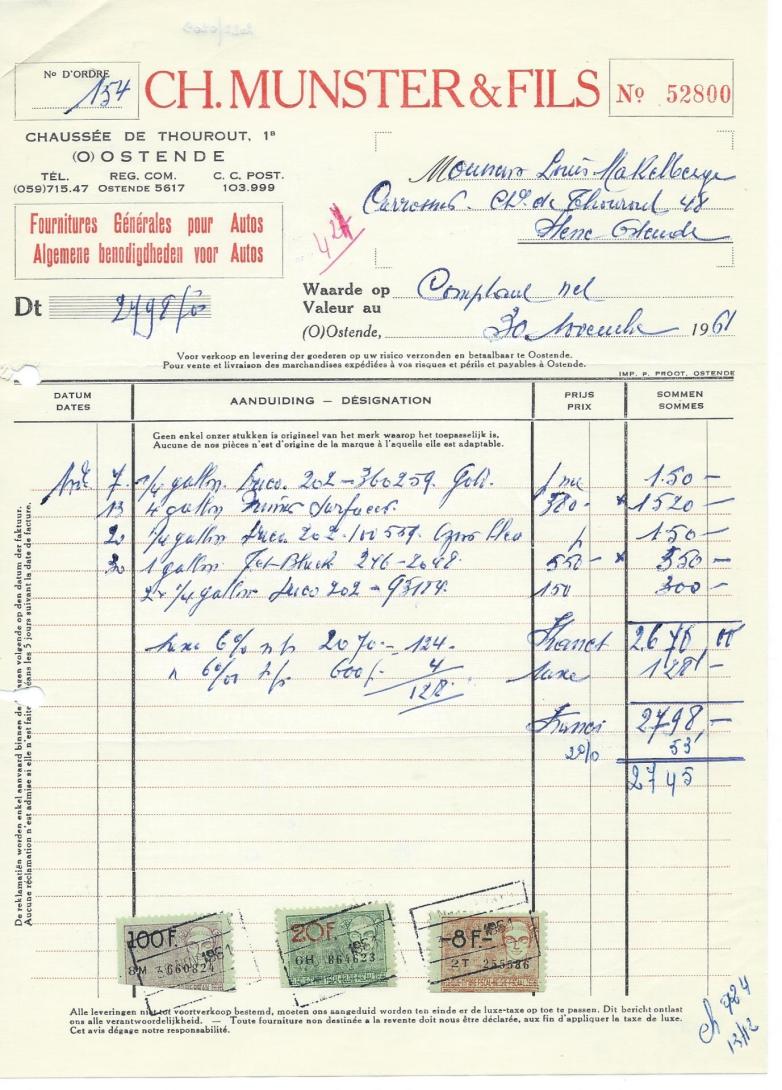 No D'ORDRE
154
CH. MUNSTER & FILS
No 52800
CHAUSSÉE DE THOUROUT, 1B
(O) OSTENDE
TÉL. REG. COM. C. C. POST.
(059)715.47 OSTENDE 5617 103.999
Fournitures Générales pour Autos
Algemene benodigdheden voor Autos
Louis Makelberge
Chée de Thourout 48
Ostende
Dt 2798
Waarde op
Valeur au
Comptant net
(O)Ostende, 30 Novembre 1961
Voor verkoop en levering der goederen op uw risico verzonden en betaalbaar te Oostende.
Pour vente et livraison des marchandises expédiées à vos risques et périls et payables à Ostende.
IMP. P. PROOT, OSTENDE
DATUM AANDUIDING — DÉSIGNATION PRIJS SOMMEN
DATES PRIX SOMMES
Geen enkel onzer stukken is origineel van het merk waarop het toepasselijk is.
Aucune de nos pièces n'est d'origine de la marque à l'aquelle elle est adaptable.
7 1/4 gallon Duco 202-360259 Gold. 150 —
13 4 gallon Surfacer 380- x 1520 —
20 1/4 gallon Duco 202-100559 150 —
30 1 gallon Jet-Black 246-2048 550 — x 550 —
2 x 1/4 gallon Duco 202-95184 150 300 —
taxe 6% 2070.- 124.- 2670 00
6% 600 4 taxe 128,-
128.
Francs 2798,-
2% 53,
2745
De reklamatiën worden enkel aanvaard binnen de volgende op den datum der faktuur.
Aucune réclamation n'est admise si elle n'est faite dans les 5 jours suivant la date de facture.
100 F.
1961
8M 660824
20F
1961
GH 864623
-8F-
1961
2T 255586
Alle leveringen niet tot voortverkoop bestemd, moeten ons aangeduid worden ten einde er de luxe-taxe op toe te passen. Dit bericht ontlast
ons alle verantwoordelijkheid. — Toute fourniture non destinée à la revente doit nous être déclarée, aux fin d'appliquer la taxe de luxe.
Cet avis dégage notre responsabilité.
13/12